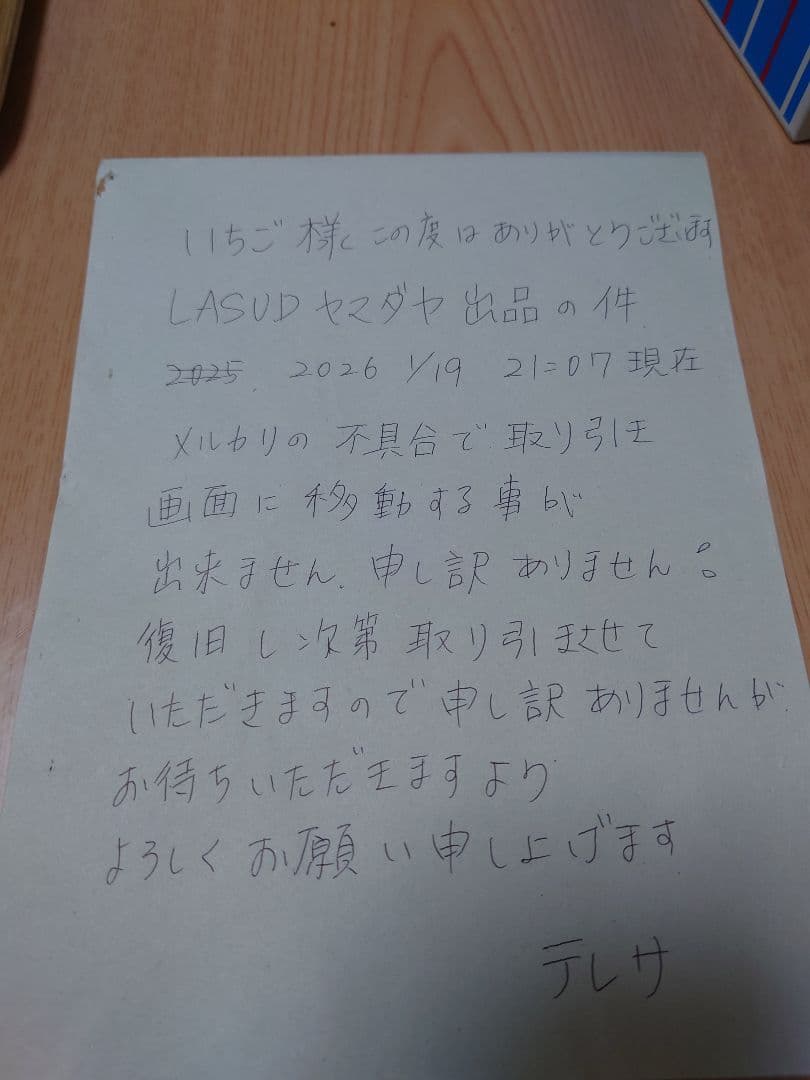 いちご様、この度はありがとうございます
LASUD ヤマダヤ 出品の件
2025. 2026 1/19 21:07 現在
メルカリの不具合で取り引き
画面に移動する事が
出来ません、申し訳ありません。
復旧し次第取り引きさせて
いただきますので申し訳ありませんが
お待ちいただきますより
よろしくお願い申し上げます
テレサ